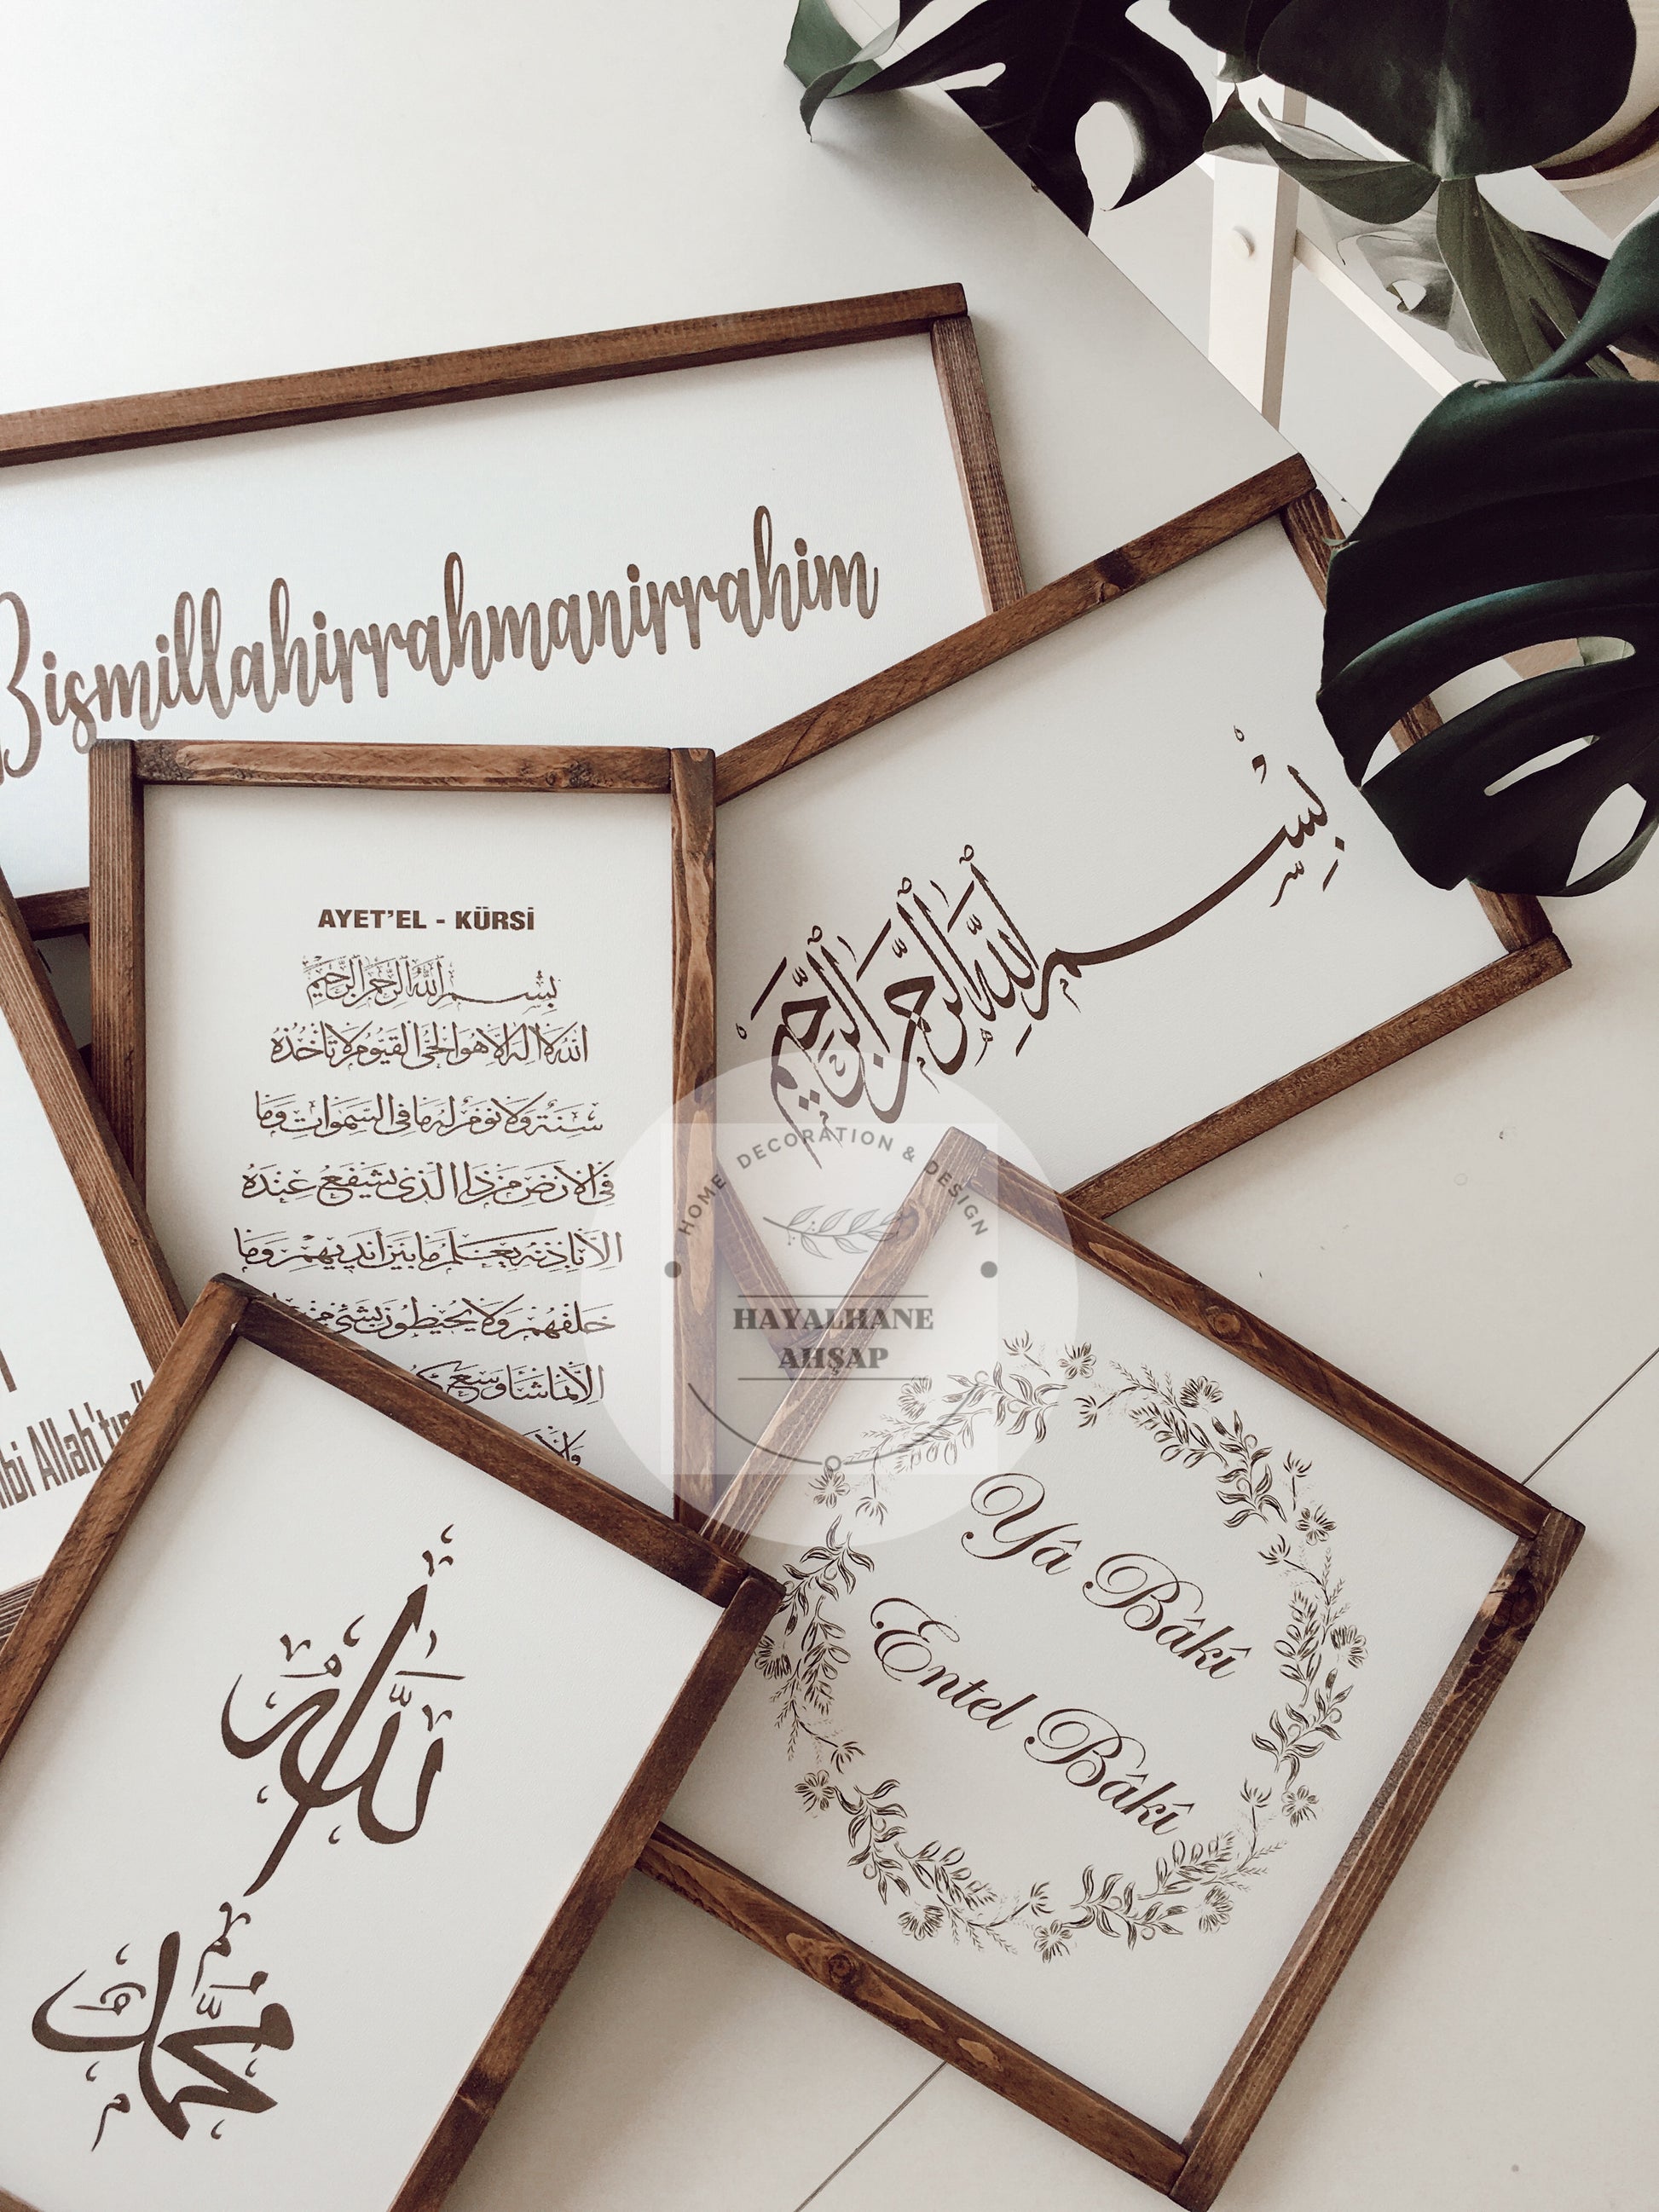 Bismillahirrahmanirrahim
بِسْمِ اللّٰهِ الرَّحْمٰنِ الرَّحِيمِ
AYET'EL - KÜRSİ
بِسْمِ اللّٰهِ الرَّحْمٰنِ الرَّحِيمِ
اَللّٰهُ لَا اِلٰهَ اِلَّا هُوَ الْحَيُّ الْقَيُّومُ لَا تَأْخُذُهُ
سِنَةٌ وَلَا نَوْمٌ لَهُ مَا فِي السَّمٰوَاتِ وَمَا
فِي الْاَرْضِ مَنْ ذَا الَّذِي يَشْفَعُ عِنْدَهُ
اِلَّا بِاِذْنِهِ يَعْلَمُ مَا بَيْنَ اَيْدِيهِمْ وَمَا
خَلْفَهُمْ وَلَا يُحِيطُونَ بِشَيْءٍ مِنْ
اِلَّا بِمَا شَاءَ وَسِعَ
HOME DECORATION & DESIGN
HAYALHANE
AHŞAP
Allah'tır
Yâ Bâkî
Entel Bâkî
الله
محمد